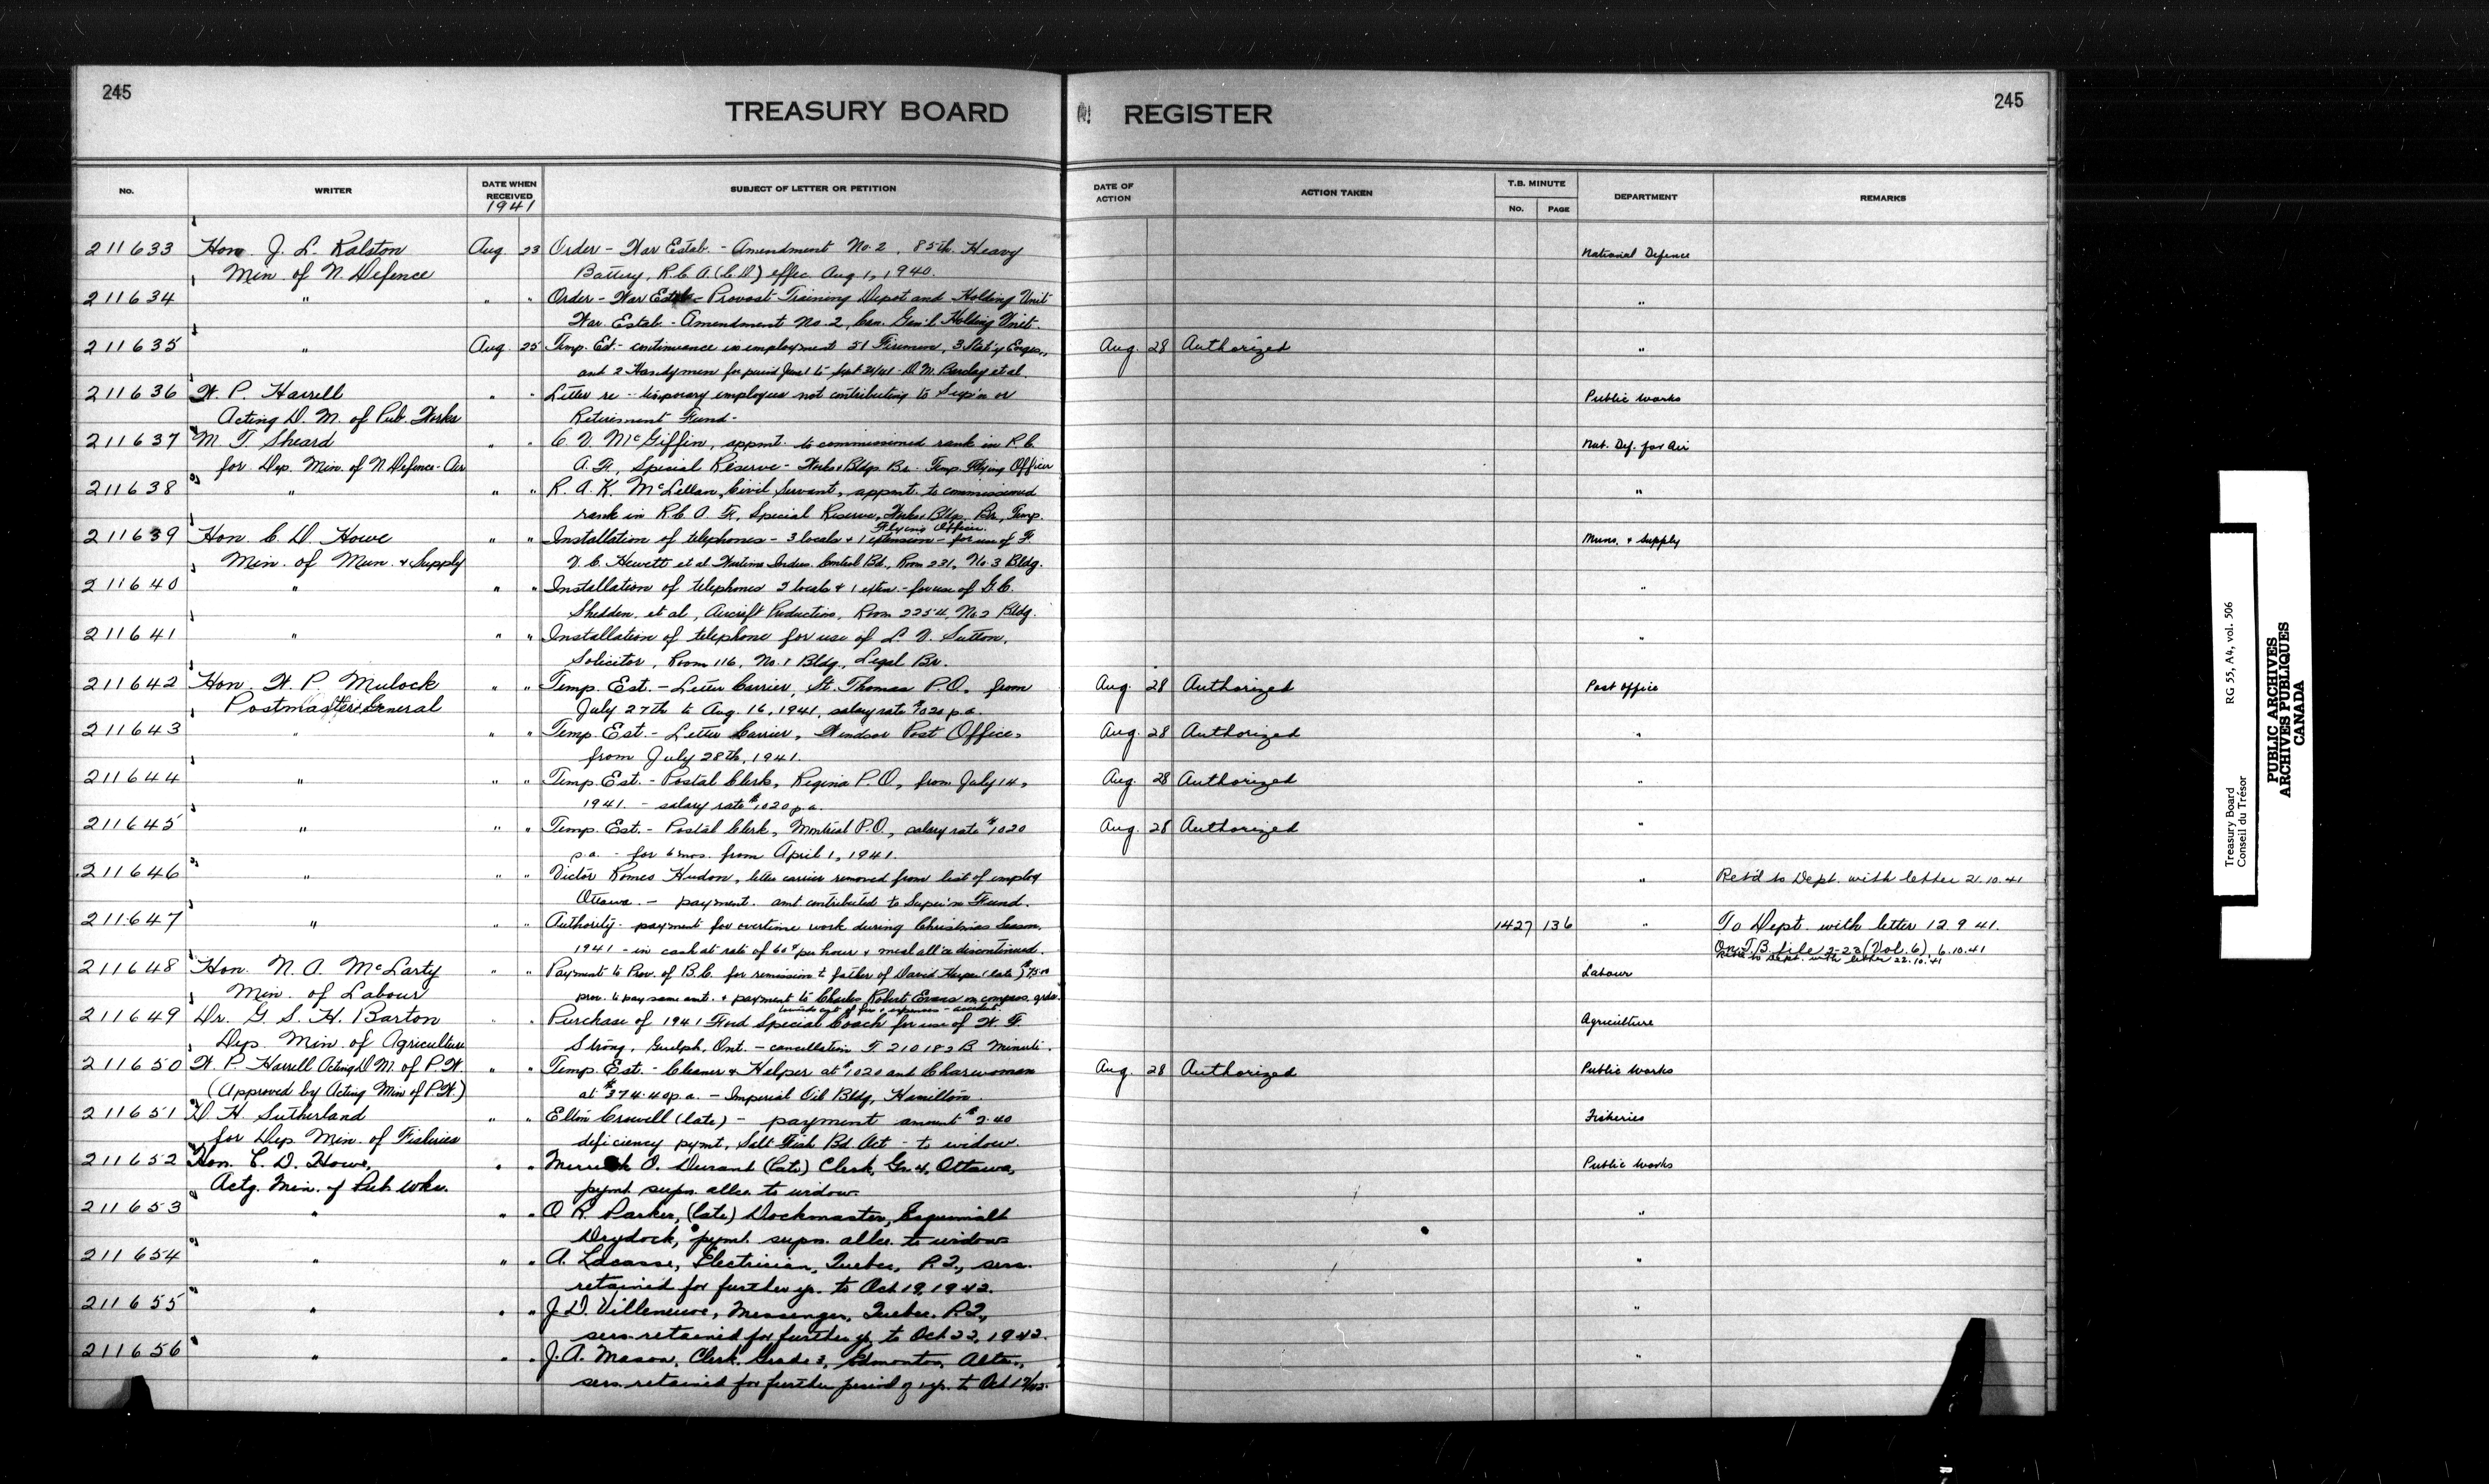 245
TREASURY BOARD REGISTER
245
No. WRITER DATE WHEN RECEIVED SUBJECT OF LETTER OR PETITION DATE OF ACTION ACTION TAKEN T.B. MINUTE No. PAGE DEPARTMENT REMARKS
1941
211633 Hon. J. L. Ralston Aug. 23 Order - War Estab. - Amendment No. 2, 85th Heavy National Defence
Min. of N. Defence Battery, R.C.A. (C.D) effec. Aug 1, 1940.
211634 " " " Order - War Estab - Provost Training Depot and Holding Unit "
War Estab - Amendment No. 2, Can. Gen'l Holding Unit.
211635 " Aug. 25 Temp. Est. - continuance in employment 51 Firemen, 3 Stat'y Engrs., Aug. 28 Authorized "
and 2 Handymen for period June 1 to Sept 30/41 - D. M. Barclay et al.
211636 W. P. Harrell " " Letter re - temporary employees not contributing to Sup'n or Public Works
Acting D. M. of Pub. Works Retirement Fund -
211637 M. T. Sheard " " C. V. McGiffin, appmt. to commissioned rank in R.C. Nat. Def. for Air
for Dep. Min. of N. Defence - Air A. F., Special Reserve - Works & Bldgs Br. Temp. Flying Officer
211638 " " " R. A. K. McLellan, Civil Servant, appmt. to commissioned "
rank in R.C.A.F., Special Reserve, Works & Bldgs. Br., Temp.
Flying Officer.
211639 Hon. C. D. Howe " " Installation of telephones - 3 locals & 1 extension - for use of F. Muns. & Supply
Min. of Mun. & Supply V. C. Hewett et al Wartime Indus. Control Bd., Room 231, No. 3 Bldg.
211640 " " " Installation of telephones 2 locals & 1 exten. - for use of G. C. "
Shedden, et al, Aircraft Production, Room 2254, No 2 Bldg.
211641 " " " Installation of telephone for use of L. V. Sutton, "
Solicitor, Room 116, No. 1 Bldg., Legal Br.
211642 Hon. W. P. Mulock " " Temp. Est. - Letter Carrier, St. Thomas P.O., from Aug. 28 Authorized Post Office
Postmaster General July 27th to Aug. 16, 1941, salary rate $1020 p.a.
211643 " " " Temp. Est. - Letter Carrier, Windsor Post Office, Aug. 28 Authorized "
from July 28th, 1941.
211644 " " " Temp. Est. - Postal Clerk, Regina P.O., from July 14, Aug. 28 Authorized "
1941. - salary rate $1020 p.a.
211645 " " " Temp. Est. - Postal Clerk, Montreal P.O., salary rate $1020 Aug. 28 Authorized "
p.a. - for 6 mos. from April 1, 1941.
211646 " " " Victor Romes Hudon, letter carrier removed from list of employ " Ret'd to Dept. with letter 21.10.41
Ottawa. - payment. amt contributed to Super'n Fund.
211647 " " " Authority - payment for overtime work during Christmas Season, 1427 136 " To Dept. with letter 12.9.41.
1941 - in cash at rate of 60¢ per hour & meal all'ce discontinued. On T.B. file 2-23 (Vol. 6), 6.10.41
Ret'd to Dept. with letter 22.10.41
211648 Hon. N. A. McLarty " " Payment to Prov. of B.C. for remission to father of David Harper (late) $75.00 Labour
Min. of Labour prov. to pay same amt. & payment to Charles Robert Evans on compas. grds.
211649 Dr. G. S. H. Barton " " Purchase of 1941 Ford Special Coach for use of W. F. Agriculture
Dep. Min. of Agriculture Strong, Guelph, Ont. - cancellation T. 210182 B. Minute.
211650 W. P. Harrell Acting D. M. of P. W. " " Temp. Est. - Cleaner & Helper at $1020 and Charwoman Aug. 28 Authorized Public Works
(Approved by Acting Min of P.W.) at $374.40 p.a. - Imperial Oil Bldg, Hamilton.
211651 D. H. Sutherland " " Elton Crowell (late) - payment amount $2.40 Fisheries
for Dep. Min. of Fisheries deficiency pymt, Salt Fish Bd. Act - to widow.
211652 Hon. C. D. Howe, " " Merrick O. Durant (late) Clerk, Gr. 4, Ottawa, Public Works
Actg. Min. of Pub. Wks. pymt. supn. allce. to widow.
211653 " " " O. R. Parker, (late) Dockmaster, Esquimalt "
Drydock, pymt. supn. allce. to widow
211654 " " " A. Lacasse, Electrician, Quebec, P.Q., sers. "
retained for further yr. to Oct 19, 1942.
211655 " " " J. D. Villeneuve, Messenger, Quebec, P.Q., "
sers. retained for further yr. to Oct 22, 1942.
211656 " " " J. A. Mason, Clerk, Grade 3, Edmonton, Alta., "
sers. retained for further period of 1 yr. to Oct 17/42.
Treasury Board RG 55, A4, vol. 506
Conseil du Trésor
PUBLIC ARCHIVES
ARCHIVES PUBLIQUES
CANADA